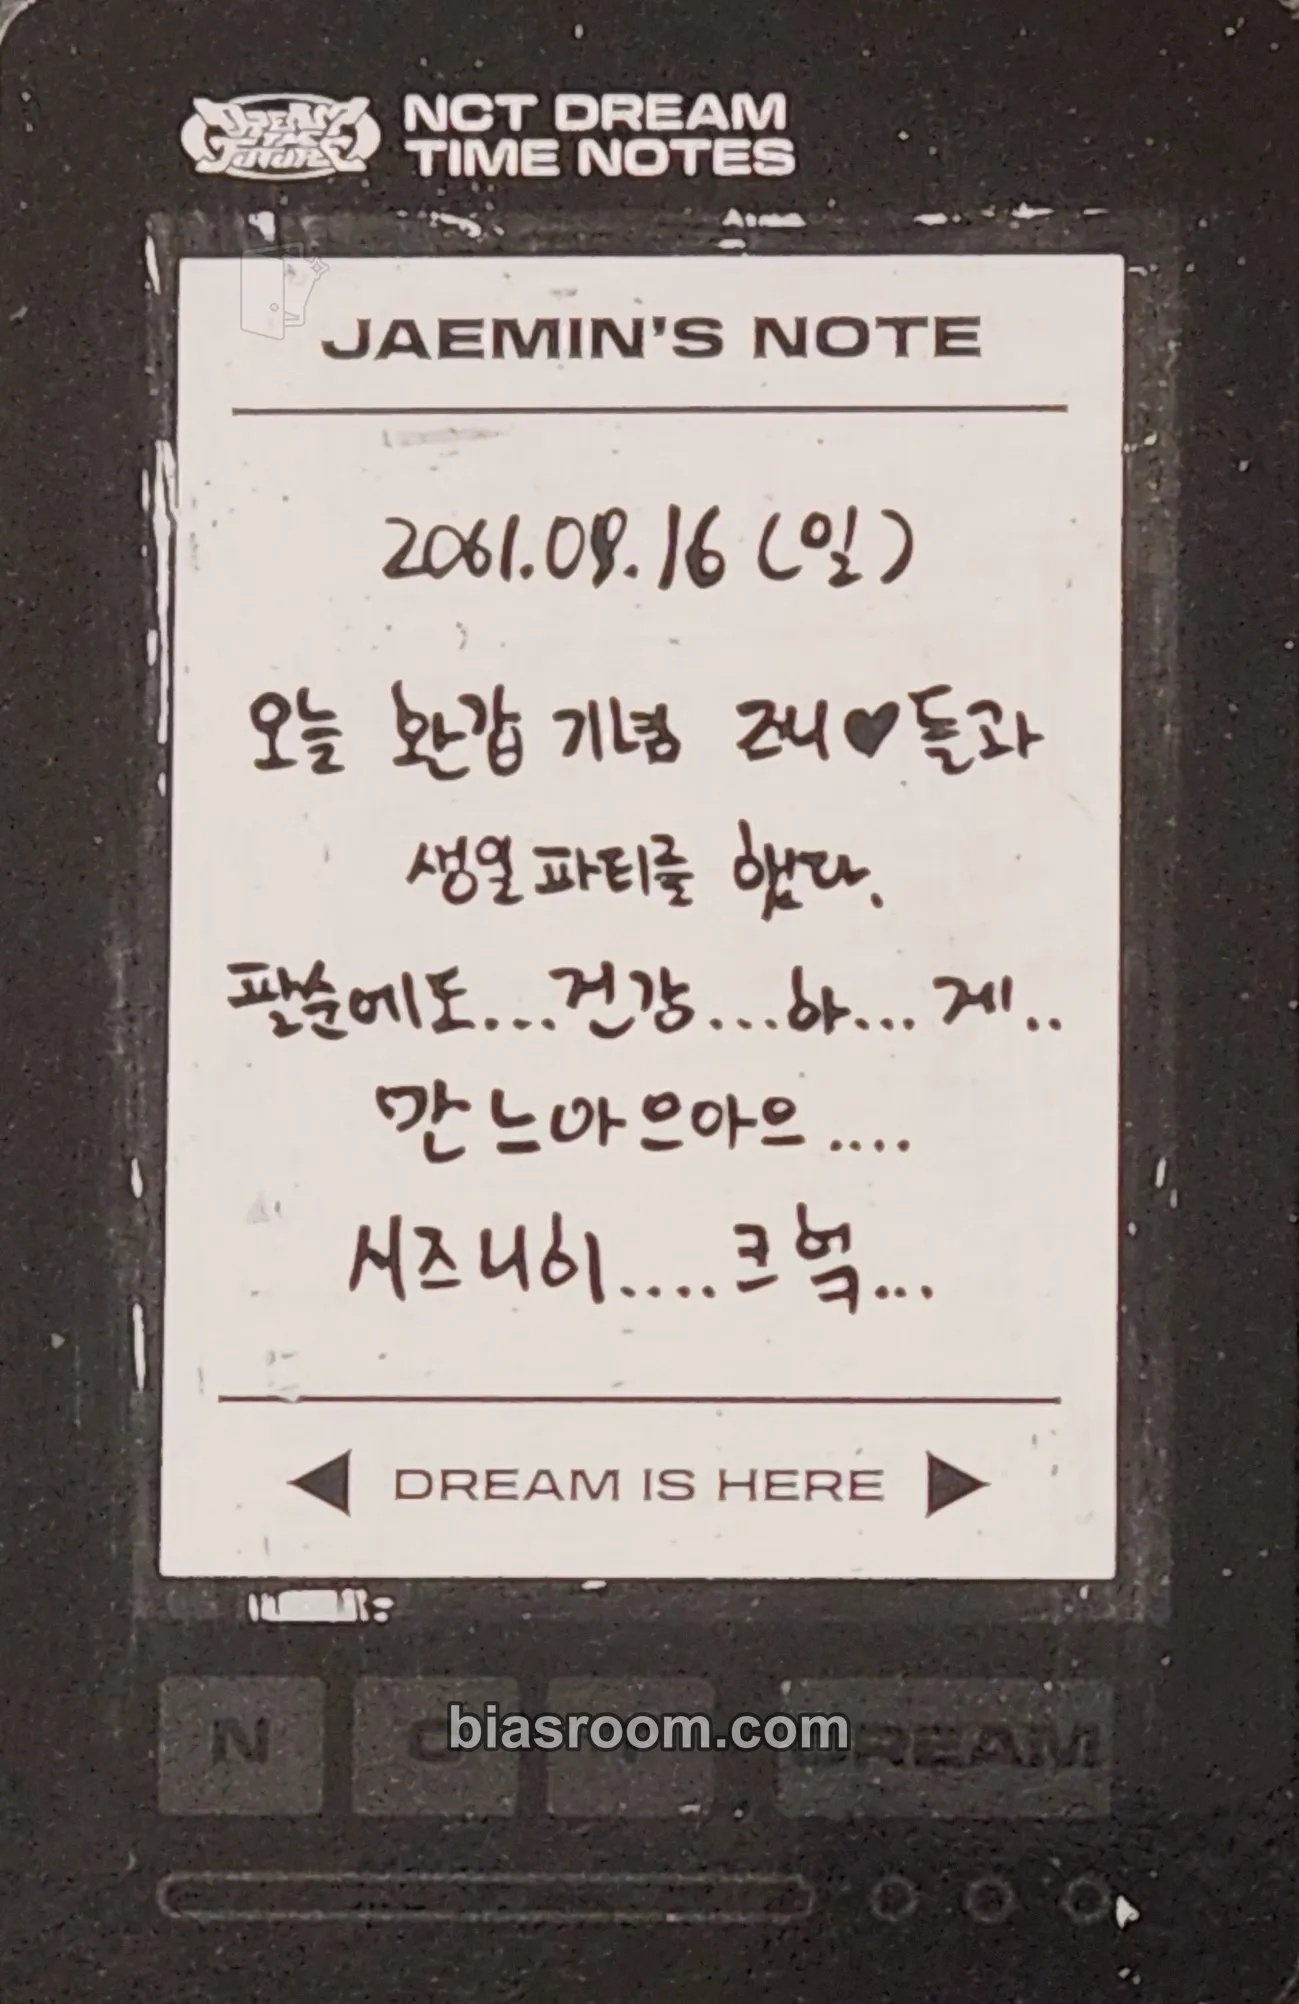 DREAM STAGE FUTURE
NCT DREAM
TIME NOTES
JAEMIN'S NOTE
2061.08.16 (일)
오늘 환갑 기념 즈니♥들과
생일 파티를 했다.
팔순에도...건강...하...게..
만 느아 으아으....
시즈니히....크헉...
◀ DREAM IS HERE ▶
N C DREAM
biasroom.com